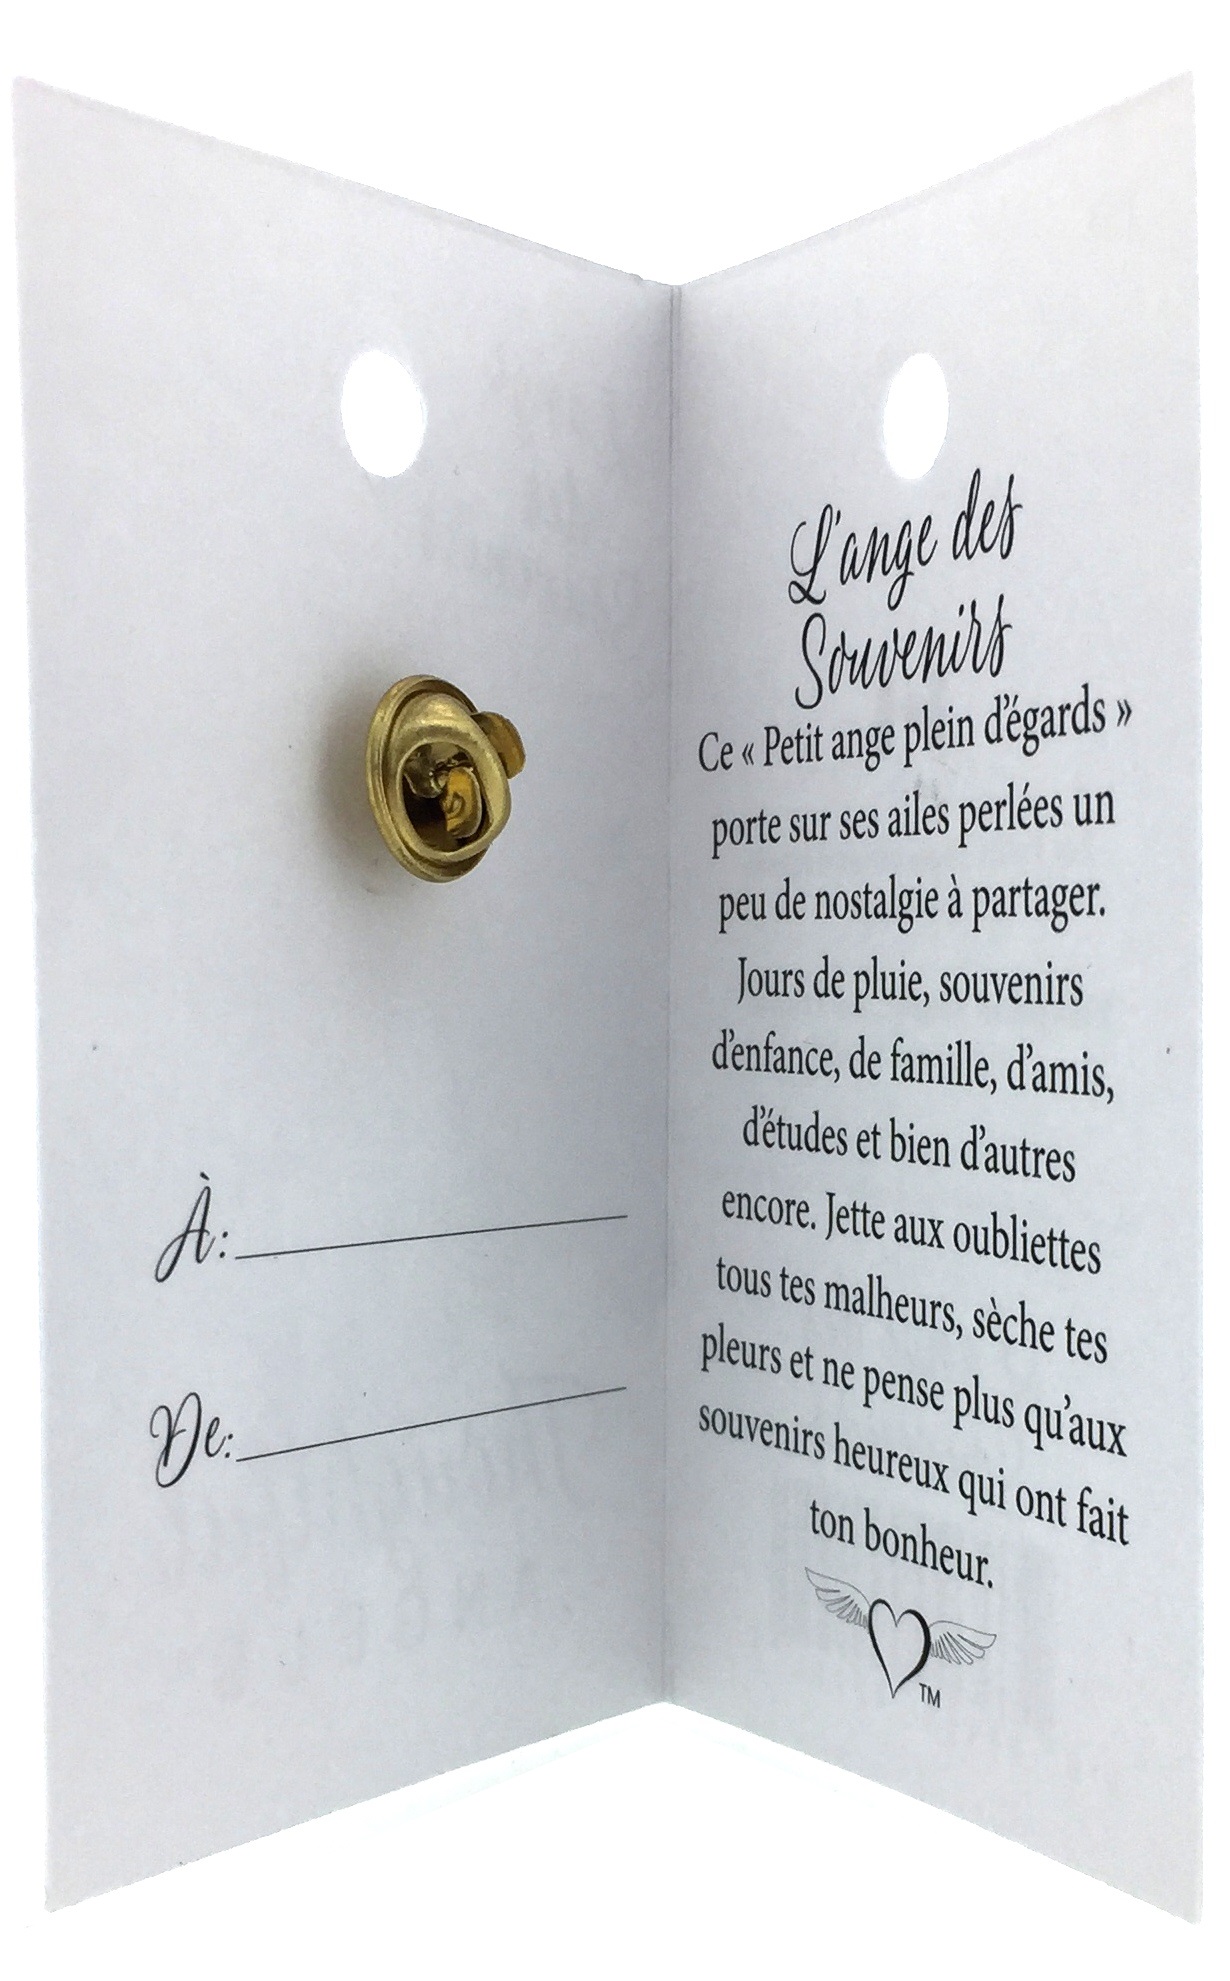 À:
De:
L'ange des
Souvenirs
Ce « Petit ange plein d'égards »
porte sur ses ailes perlées un
peu de nostalgie à partager.
Jours de pluie, souvenirs
d'enfance, de famille, d'amis,
d'études et bien d'autres
encore. Jette aux oubliettes
tous tes malheurs, sèche tes
pleurs et ne pense plus qu'aux
souvenirs heureux qui ont fait
ton bonheur.
TM